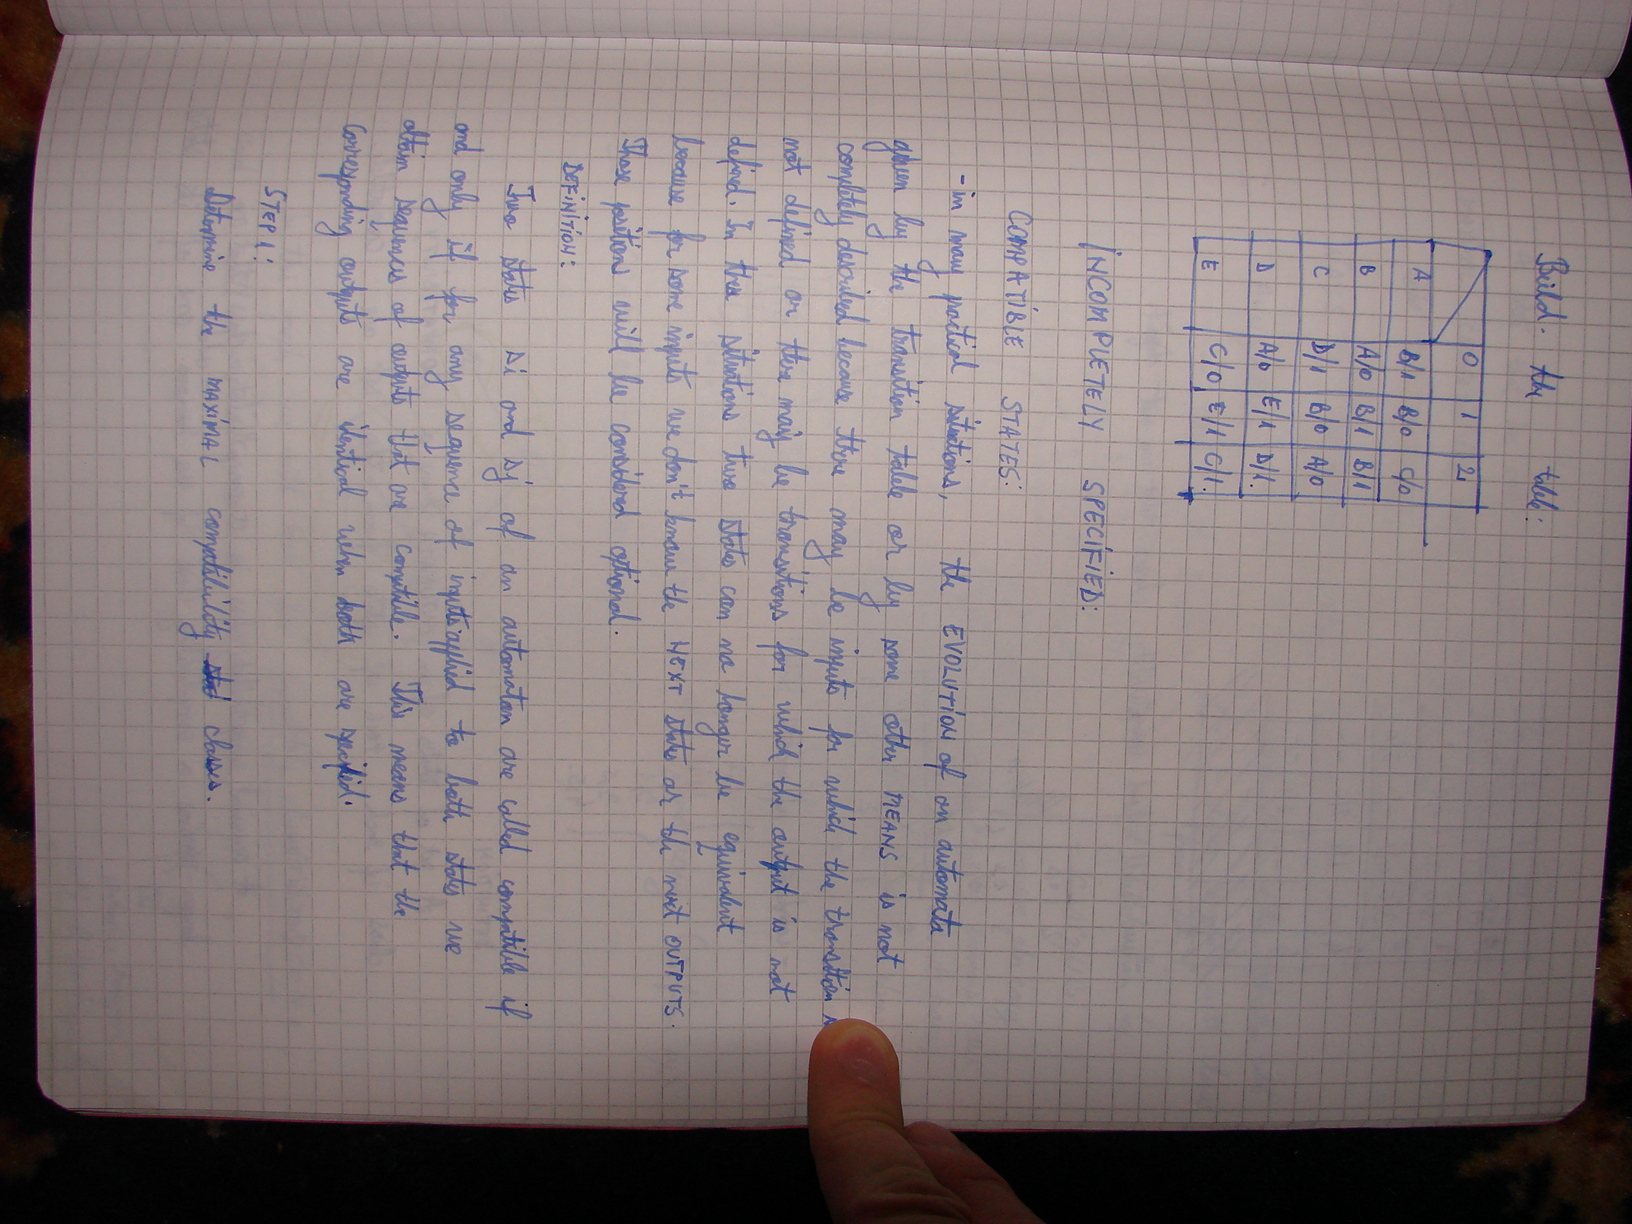 Bild. the table:
0 1 2
A B/1 B/0 C/0
B A/0 B/1 B/1
C D/1 B/0 A/0
D A/0 E/1 D/1.
E C/0 E/1 C/1.
INCOMPLETELY SPECIFIED:
COMPATIBLE STATES:
- in many practical situations, the EVOLUTION of an automata
given by the transition table or by some other MEANS is not
completely described because there may be inputs for which the transition is
not defined or there may be transitions for which the output is not
defined. In these situations two states can no longer be equivalent
because for some inputs we don't know the NEXT state or the next OUTPUTS.
Those positions will be considered optional.
DEFINITION:
Two states si and sj of an automaton are called compatible if
and only if for any sequence of inputs applied to both states we
obtain sequences of outputs that are compatible. This means that the
corresponding outputs are identical when both are specified.
STEP 1:
Determine the MAXIMAL compatibility classes.